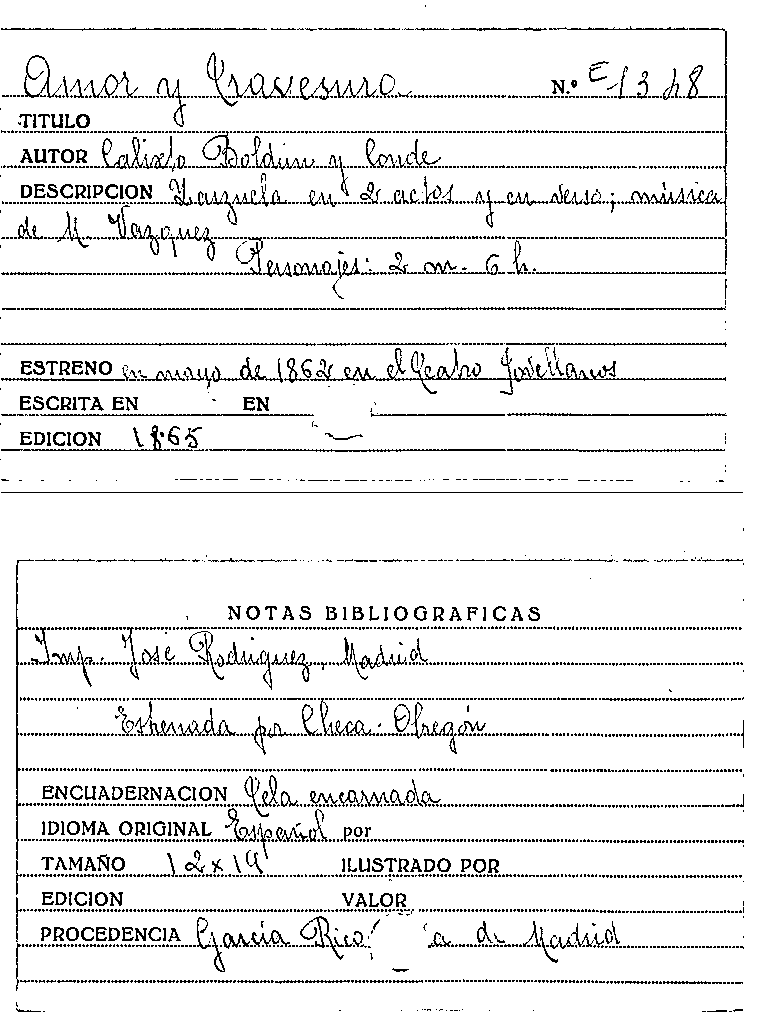 Amor y Travesura N.º E-1348
TITULO
AUTOR Calixto Boldún y Conde
DESCRIPCION Zarzuela en 2 actos y en verso; música
de M. Vazquez
Personajes: 2 m. 6 h.
ESTRENO en mayo de 1862 en el Teatro Jovellanos
ESCRITA EN EN
EDICION 1865
NOTAS BIBLIOGRAFICAS
Imp. José Rodriguez, Madrid
Estrenada por Checa-Obregón
ENCUADERNACION Tela encarnada
IDIOMA ORIGINAL Español por
TAMAÑO 12x19 ILUSTRADO POR
EDICION VALOR
PROCEDENCIA García Rico de Madrid